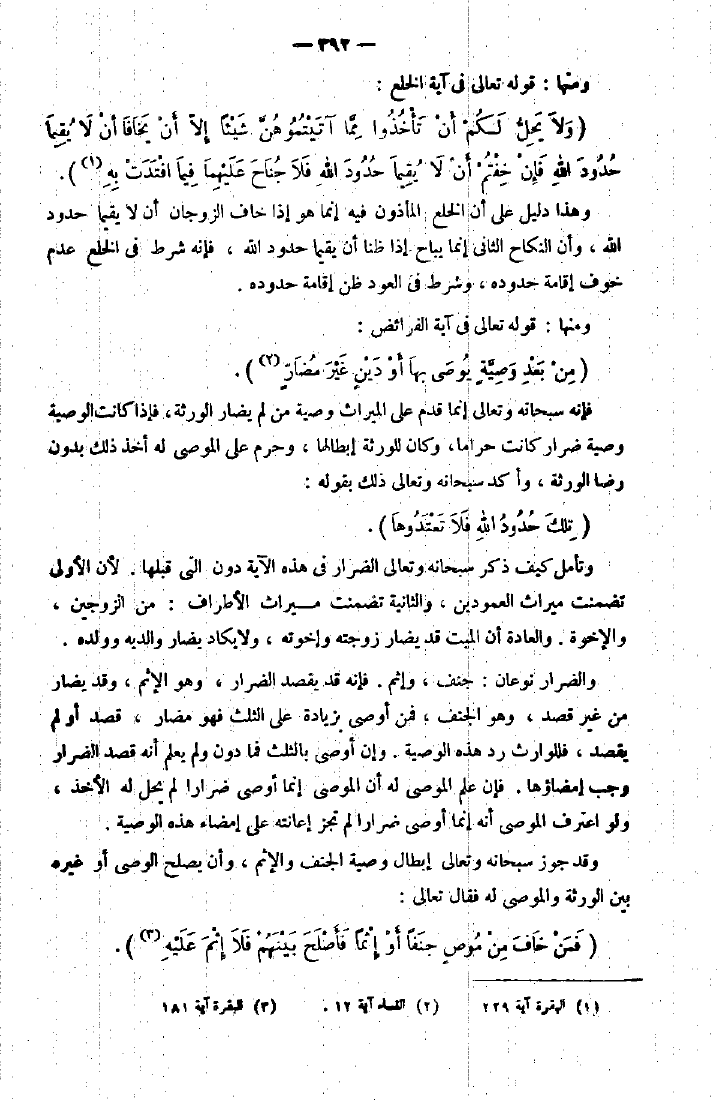 — ٣٩٢ —
ومنها : قوله تعالى فى آية الخلع :
( وَلاَ يَحِلُّ لَـكُمْ أَنْ تَأْخُذُوا مِمَّا آتَيْتُمُوهُنَّ شَيْئًا إِلاَّ أَنْ يَخَافَا أَنْ لاَ يُقِيمَا
حُدُودَ اللهِ فَإِنْ خِفْتُمْ أَنْ لاَ يُقِيمَا حُدُودَ اللهِ فَلاَ جُنَاحَ عَلَيْهِمَا فِيمَا افْتَدَتْ بِهِ (١) ) .
وهذا دليل على أن الخلع المأذون فيه إنما هو إذا خاف الزوجان أن لا يقيما حدود
الله ، وأن النكاح الثانى إنما يباح إذا ظنا أن يقيما حدود الله ، فإنه شرط فى الخلع عدم
خوف إقامة حدوده ، وشرط فى العود ظن إقامة حدوده .
ومنها : قوله تعالى فى آية الفرائض :
( مِنْ بَعْدِ وَصِيَّةٍ يُوصَى بِهَا أَوْ دَيْنٍ غَيْرَ مُضَارٍّ (٢) ) .
فإنه سبحانه وتعالى إنما قدم على الميراث وصية من لم يضار الورثة ، فإذا كانت الوصية
وصية ضرار كانت حراما ، وكان للورثة إبطالها ، وحرم على الموصى له أخذ ذلك بدون
رضا الورثة ، وأكد سبحانه وتعالى ذلك بقوله :
( تِلْكَ حُدُودُ اللهِ فَلاَ تَعْتَدُوهَا ) .
وتأمل كيف ذكر سبحانه وتعالى الضرار فى هذه الآية دون التى قبلها . لأن الأولى
تضمنت ميراث العمودين ، والثانية تضمنت مـيراث الأطراف : من الزوجين ،
والإخوة . والعادة أن الميت قد يضار زوجته وإخوته ، ولا يكاد يضار والديه وولده .
والضرار نوعان : جنف ، وإثم . فإنه قد يقصد الضرار ، وهو الإثم ، وقد يضار
من غير قصد ، وهو الجنف ، فمن أوصى بزيادة على الثلث فهو مضار ، قصد أو لم
يقصد ، فللوارث رد هذه الوصية . وإن أوصى بالثلث فما دون ولم يعلم أنه قصد الضرار
وجب إمضاؤها . فإن علم الموصى له أن الموصى إنما أوصى ضرارا لم يحل له الأخذ ،
ولو اعترف الموصى أنه إنما أوصى ضرارا لم تجز إعانته على إمضاء هذه الوصية .
وقد جوز سبحانه وتعالى إبطال وصية الجنف والإثم ، وأن يصلح الوصى أو غيره
بين الورثة والموصى له فقال تعالى :
( فَمَنْ خَافَ مِنْ مُوصٍ جَنَفًا أَوْ إِثْمًا فَأَصْلَحَ بَيْنَهُمْ فَلاَ إِثْمَ عَلَيْهِ (٣) ) .
(١) البقرة آية ٢٢٩ (٢) النساء آية ١٢ . (٣) البقرة آية ١٨١